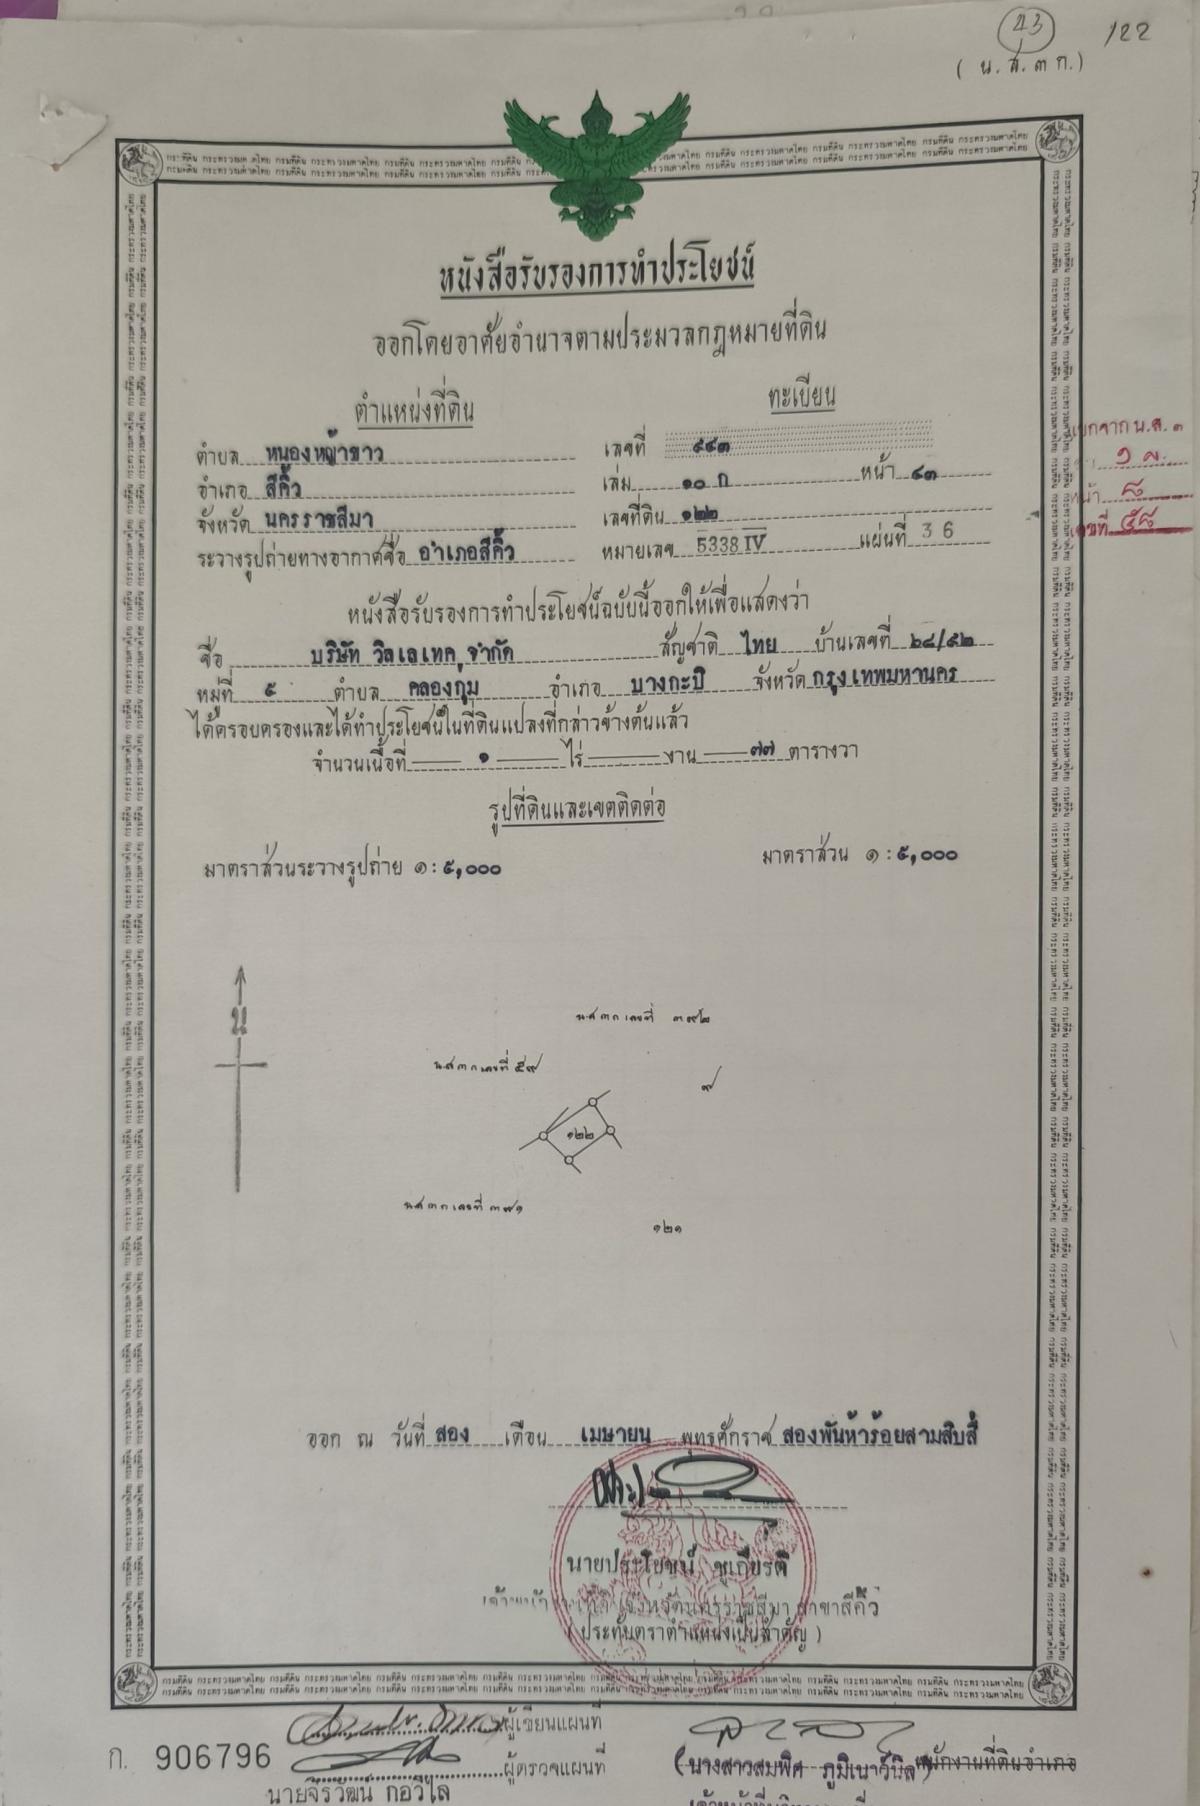 43 122
( น.ส.๓ ก.)
หนังสือรับรองการทำประโยชน์
ออกโดยอาศัยอำนาจตามประมวลกฎหมายที่ดิน
ตำแหน่งที่ดิน ทะเบียน
ตำบล หนองหญ้าขาว เลขที่ ๔๔๓
อำเภอ สีคิ้ว เล่ม ๑๐ ก หน้า ๔๓
จังหวัด นครราชสีมา เลขที่ดิน ๑๒๒
ระวางรูปถ่ายทางอากาศชื่อ อำเภอสีคิ้ว หมายเลข 5338 IV แผ่นที่ 36
น.ส. ๓
หน้า ๘
เลขที่ ๕๘
หนังสือรับรองการทำประโยชน์ฉบับนี้ออกให้เพื่อแสดงว่า
ชื่อ บริษัท วิลเลเทค จำกัด สัญชาติ ไทย บ้านเลขที่ ๒๘/๕๒
หมู่ที่ ๕ ตำบล คลองกุ่ม อำเภอ บางกะปิ จังหวัด กรุงเทพมหานคร
ได้ครอบครองและได้ทำประโยชน์ในที่ดินแปลงที่กล่าวข้างต้นแล้ว
จำนวนเนื้อที่ ๑ ไร่ งาน ๗๗ ตารางวา
รูปที่ดินและเขตติดต่อ
มาตราส่วนระวางรูปถ่าย ๑ : ๕,๐๐๐ มาตราส่วน ๑ : ๕,๐๐๐
น
น.ส.๓ ก เลขที่ ๓๙๒
น.ส.๓ ก เลขที่ ๕๙
๙
๑๒๒
น.ส.๓ ก เลขที่ ๓๙๑
๑๒๑
ออก ณ วันที่ สอง เดือน เมษายน พุทธศักราช สองพันห้าร้อยสามสิบสี่
นายประโยชน์ ชูเกียรติ
จังหวัดนครราชสีมา สาขาสีคิ้ว
( ประทับตราตำแหน่งเป็นสำคัญ )
ผู้เขียนแผนที่
ก. 906796 ผู้ตรวจแผนที่ (นางสาวสมพิศ ภูมิเนาว์นิล) พนักงานที่ดินอำเภอ
นายจิรวัฒน์ กอวิไล